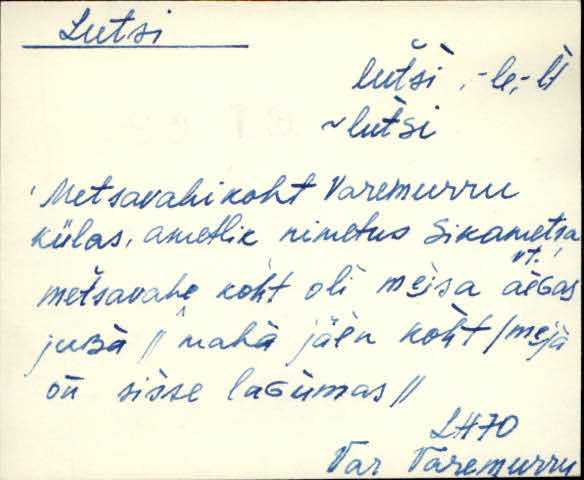 Lutsi
lutši, -le, -lt
~ lutsi
'Metsavahikoht Varemurru
külas, ametlik nimetus Sikametsa
vt.'
metsavahe koht oli meisa aeGas
juBa // nahà jäen koht / meja
on sisse laGumas //
LH70
Var Varemurru